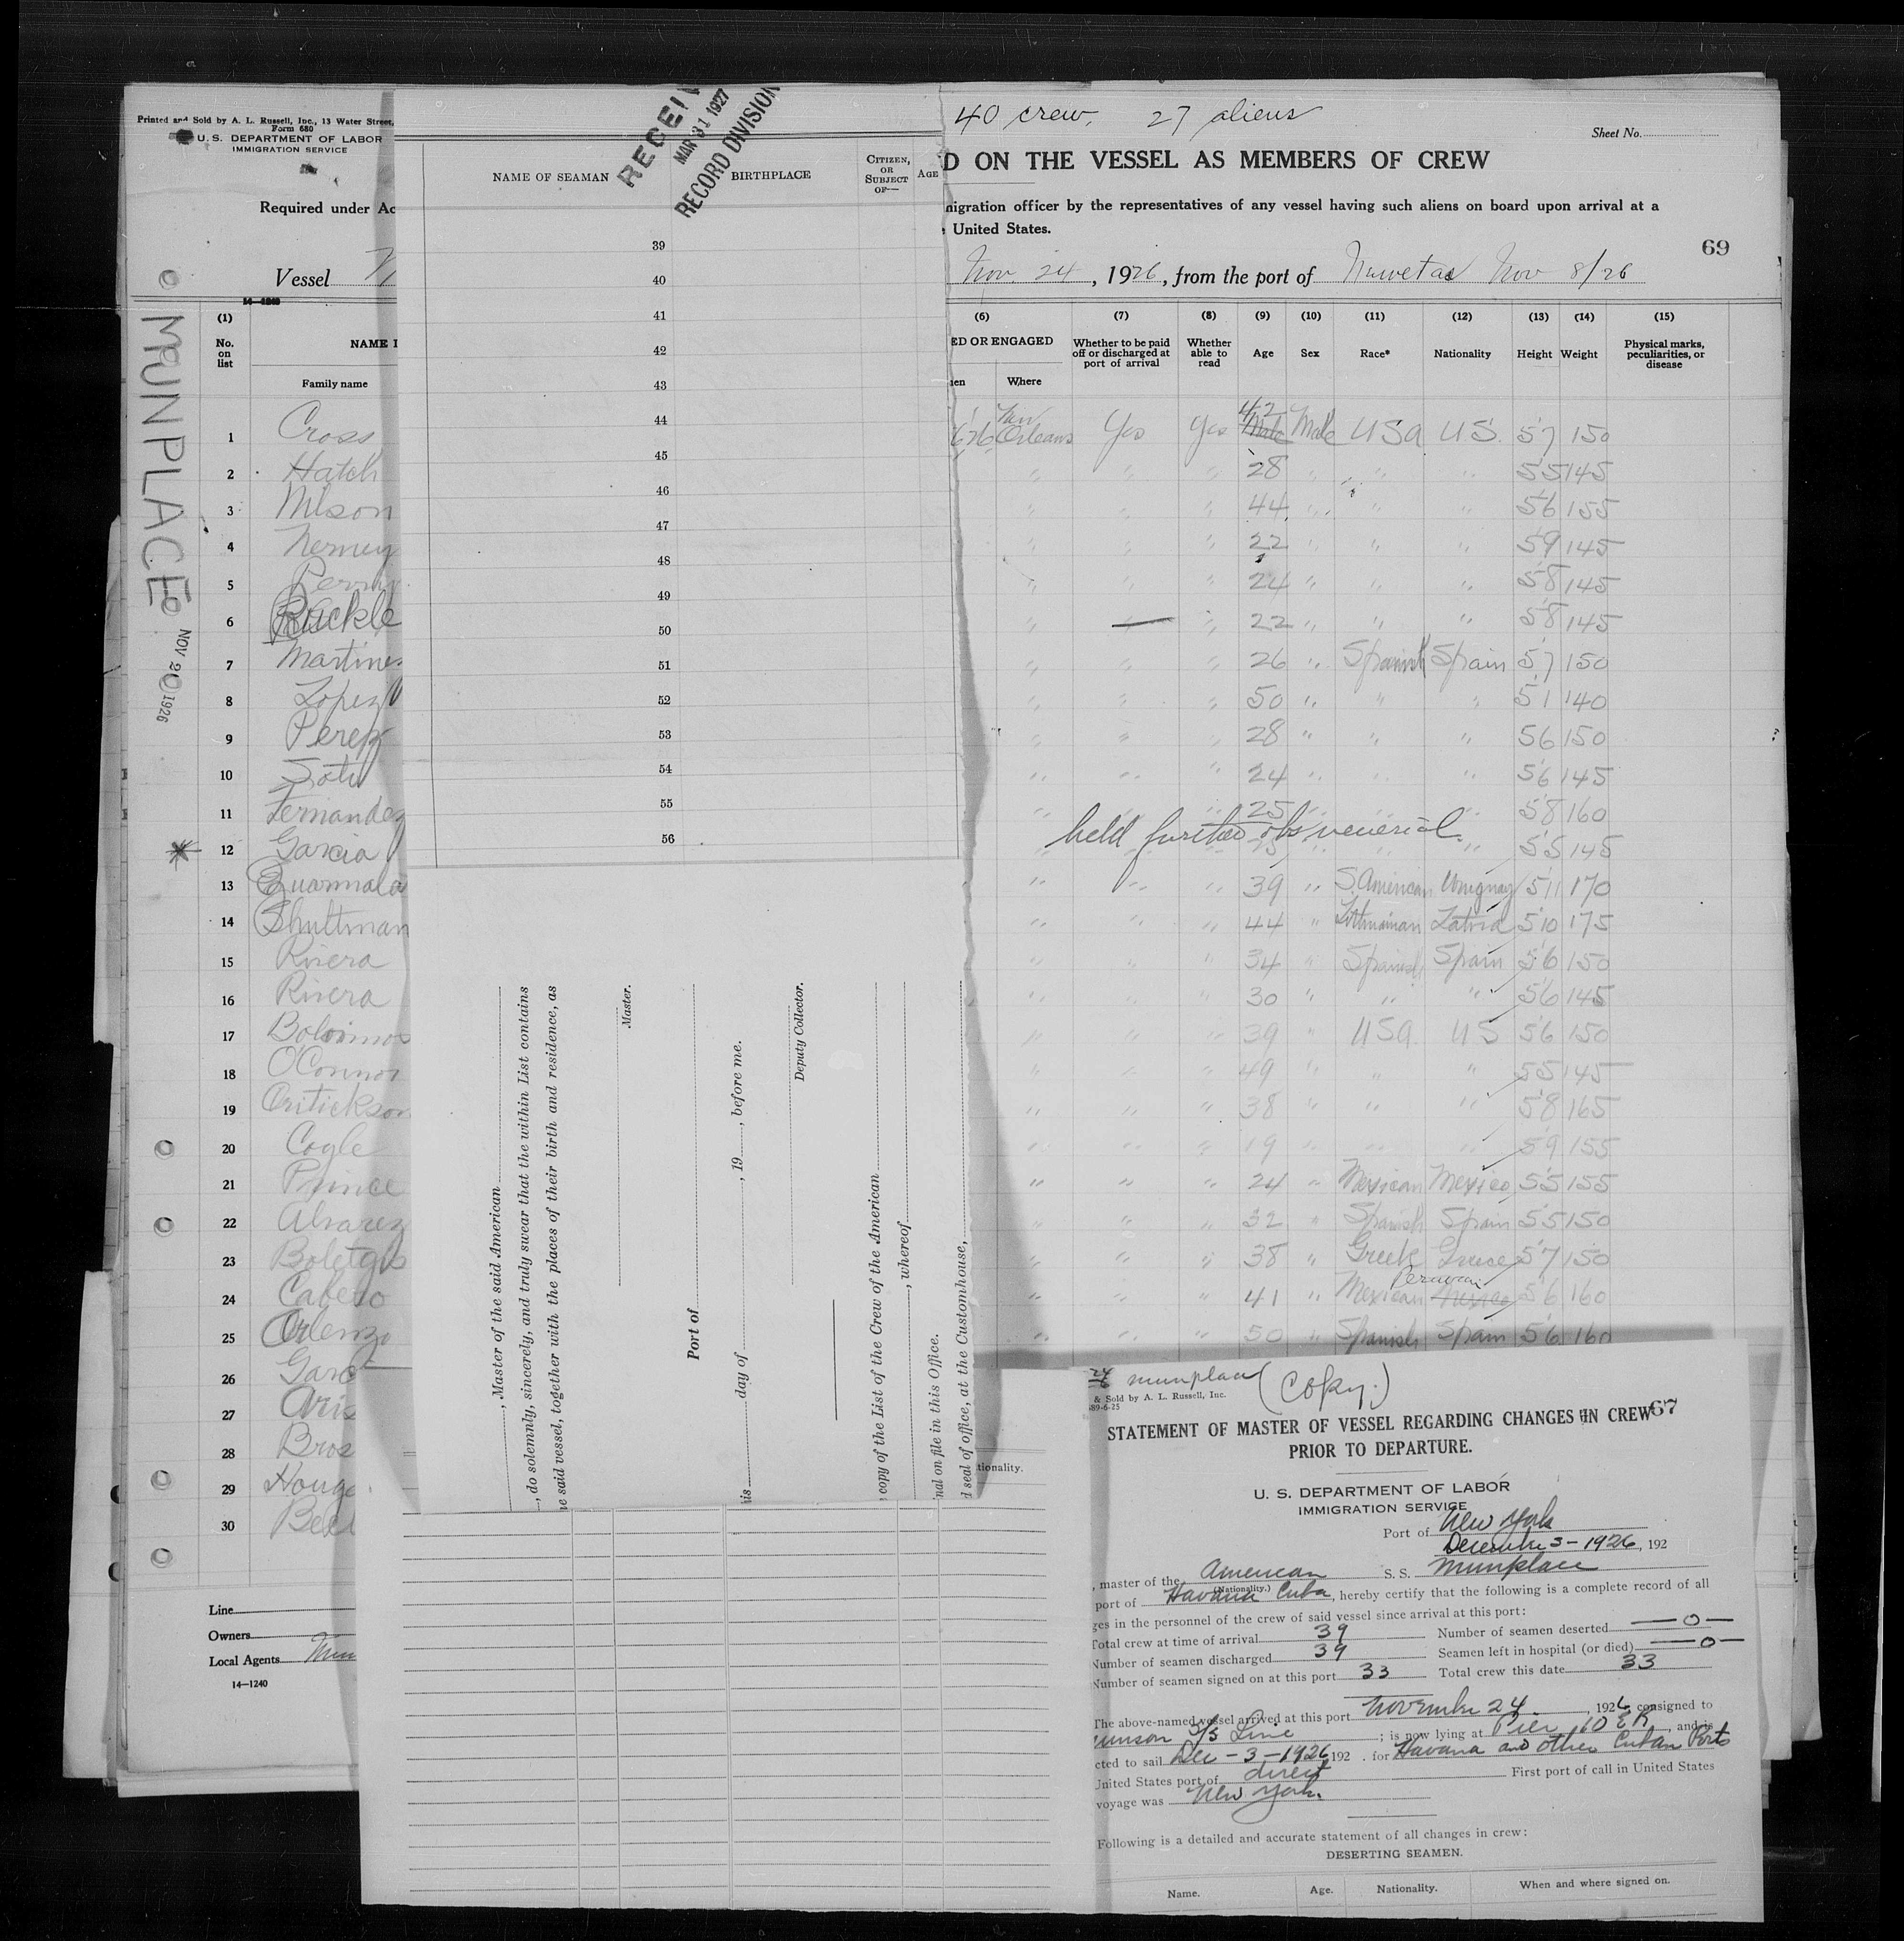 40 crew. 27 aliens
Sheet No.
Printed and Sold by A. L. Russell, Inc., 13 Water Street,
Form 680
U. S. DEPARTMENT OF LABOR
IMMIGRATION SERVICE
D ON THE VESSEL AS MEMBERS OF CREW
Required under Ac
migration officer by the representatives of any vessel having such aliens on board upon arrival at a
United States.
69
Vessel
Nov. 24, 1926, from the port of Nuevetas Nov 8/26
MUNPLACE
NOV 2 1926
(1) (6) (7) (8) (9) (10) (11) (12) (13) (14) (15)
No. on list
NAME I
Family name
ED OR ENGAGED
Where
Whether to be paid off or discharged at port of arrival
Whether able to read
Age
Sex
Race*
Nationality
Height
Weight
Physical marks, peculiarities, or disease
1 Cross New Orleans Yes Yes 42 Male USA US. 57 150
2 Hatch " " " 28 " " " 55 145
3 " " " 44 " " " 56 155
4 " " " 22 " " " 59 145
5 " " " 24 " " " 58 145
6 " " " 22 " " " 58 145
7 Martines " " " 26 " Spanish Spain 57 150
8 Lopez " " " 50 " " " 51 140
9 Perez " " " 28 " " " 56 150
10 " " " 24 " " " 56 145
11 Fernandez " " " 25 " " " 58 160
held further obs venereal
12 Garcia " " 55 145
13 " " " 39 " S. American Uruguay 511 170
14 Shultman " " " 44 " Lithuanian Latvia 510 175
15 Rivera " " " 34 " Spanish Spain 56 150
16 Rivera " " " 30 " " " 56 145
17 " " " 39 " USA US 56 150
18 O'Connor " " " 49 " " " 55 145
19 " " " 38 " " " 58 165
20 Cogle " " " 19 " " " 59 155
21 Prince " " " 24 " Mexican Mexico 55 155
22 Alvarez " " " 32 " Spanish Spain 55 150
23 " " " 38 " Greek Greece 57 150
Peruvian
24 " " " 41 " Mexican Mexico 56 160
25 " " " 50 " Spanish Spain 56 160
26 Garc
27 Aris
28 Bros
29 Houge
30
Line
Owners
Local Agents
14—1240
RECEIV
MAR 31 1927
RECORD DIVISION
NAME OF SEAMAN
BIRTHPLACE
CITIZEN, OR SUBJECT OF—
AGE
39
40
41
42
43
44
45
46
47
48
49
50
51
52
53
54
55
56
, Master of the said American
, do solemnly, sincerely, and truly swear that the within List contains
he said vessel, together with the places of their birth and residence, as
Master.
Port of
his day of , 19 , before me.
Deputy Collector.
copy of the List of the Crew of the American
, whereof
nal on file in this Office.
d seal of office, at the Customhouse,
tionality.
24 munplace (Copy.)
& Sold by A. L. Russell, Inc.
689-6-25
STATEMENT OF MASTER OF VESSEL REGARDING CHANGES IN CREW 67
PRIOR TO DEPARTURE.
U. S. DEPARTMENT OF LABOR
IMMIGRATION SERVICE
Port of New York
December 3-1926, 192
, master of the American S. S. Munplace
(Nationality.)
port of Havana Cuba, hereby certify that the following is a complete record of all
ges in the personnel of the crew of said vessel since arrival at this port:
Total crew at time of arrival 39 Number of seamen deserted —0—
Number of seamen discharged 39 Seamen left in hospital (or died) —0—
Number of seamen signed on at this port 33 Total crew this date 33
The above-named vessel arrived at this port November 24, 1926 consigned to
unson S/S Line; is now lying at Pier 10 ER, and is
cted to sail Dec-3-1926 192 . for Havana and other Cuban Ports
United States port of direct First port of call in United States
voyage was New York.
Following is a detailed and accurate statement of all changes in crew:
DESERTING SEAMEN.
Name. Age. Nationality. When and where signed on.